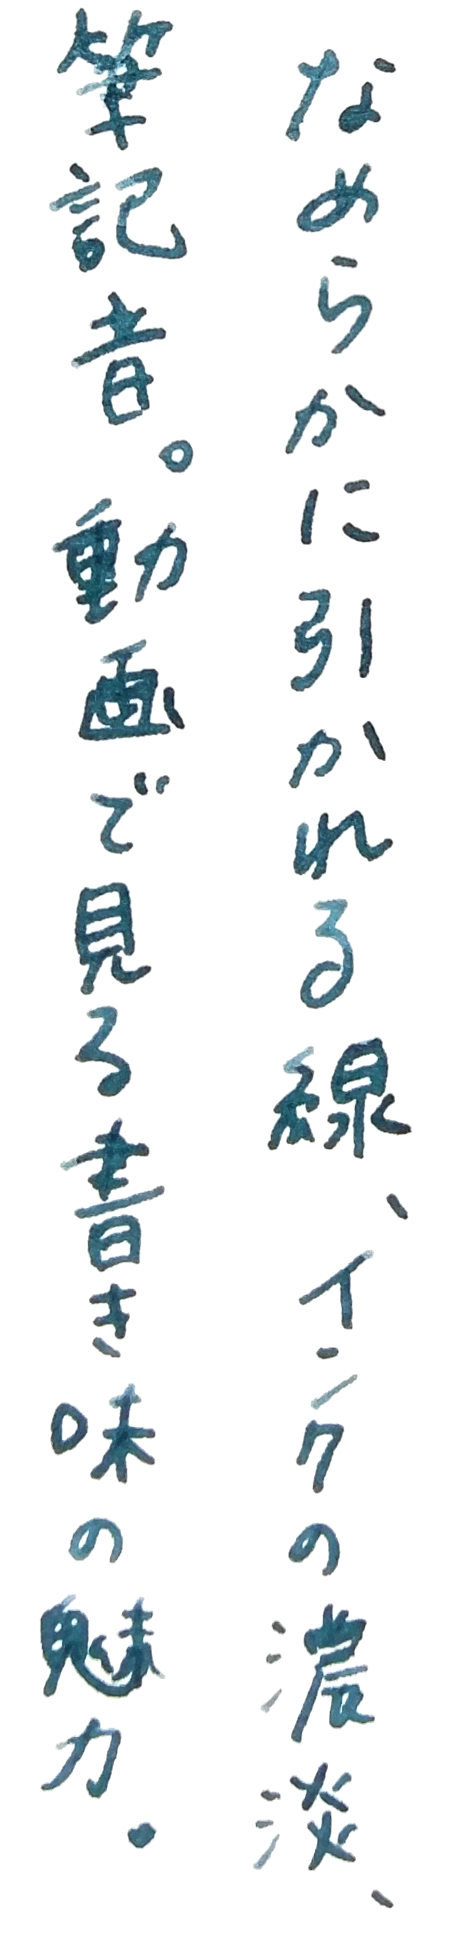 なめらかに引かれる線、インクの濃淡、
筆記音。動画で見る書き味の魅力。